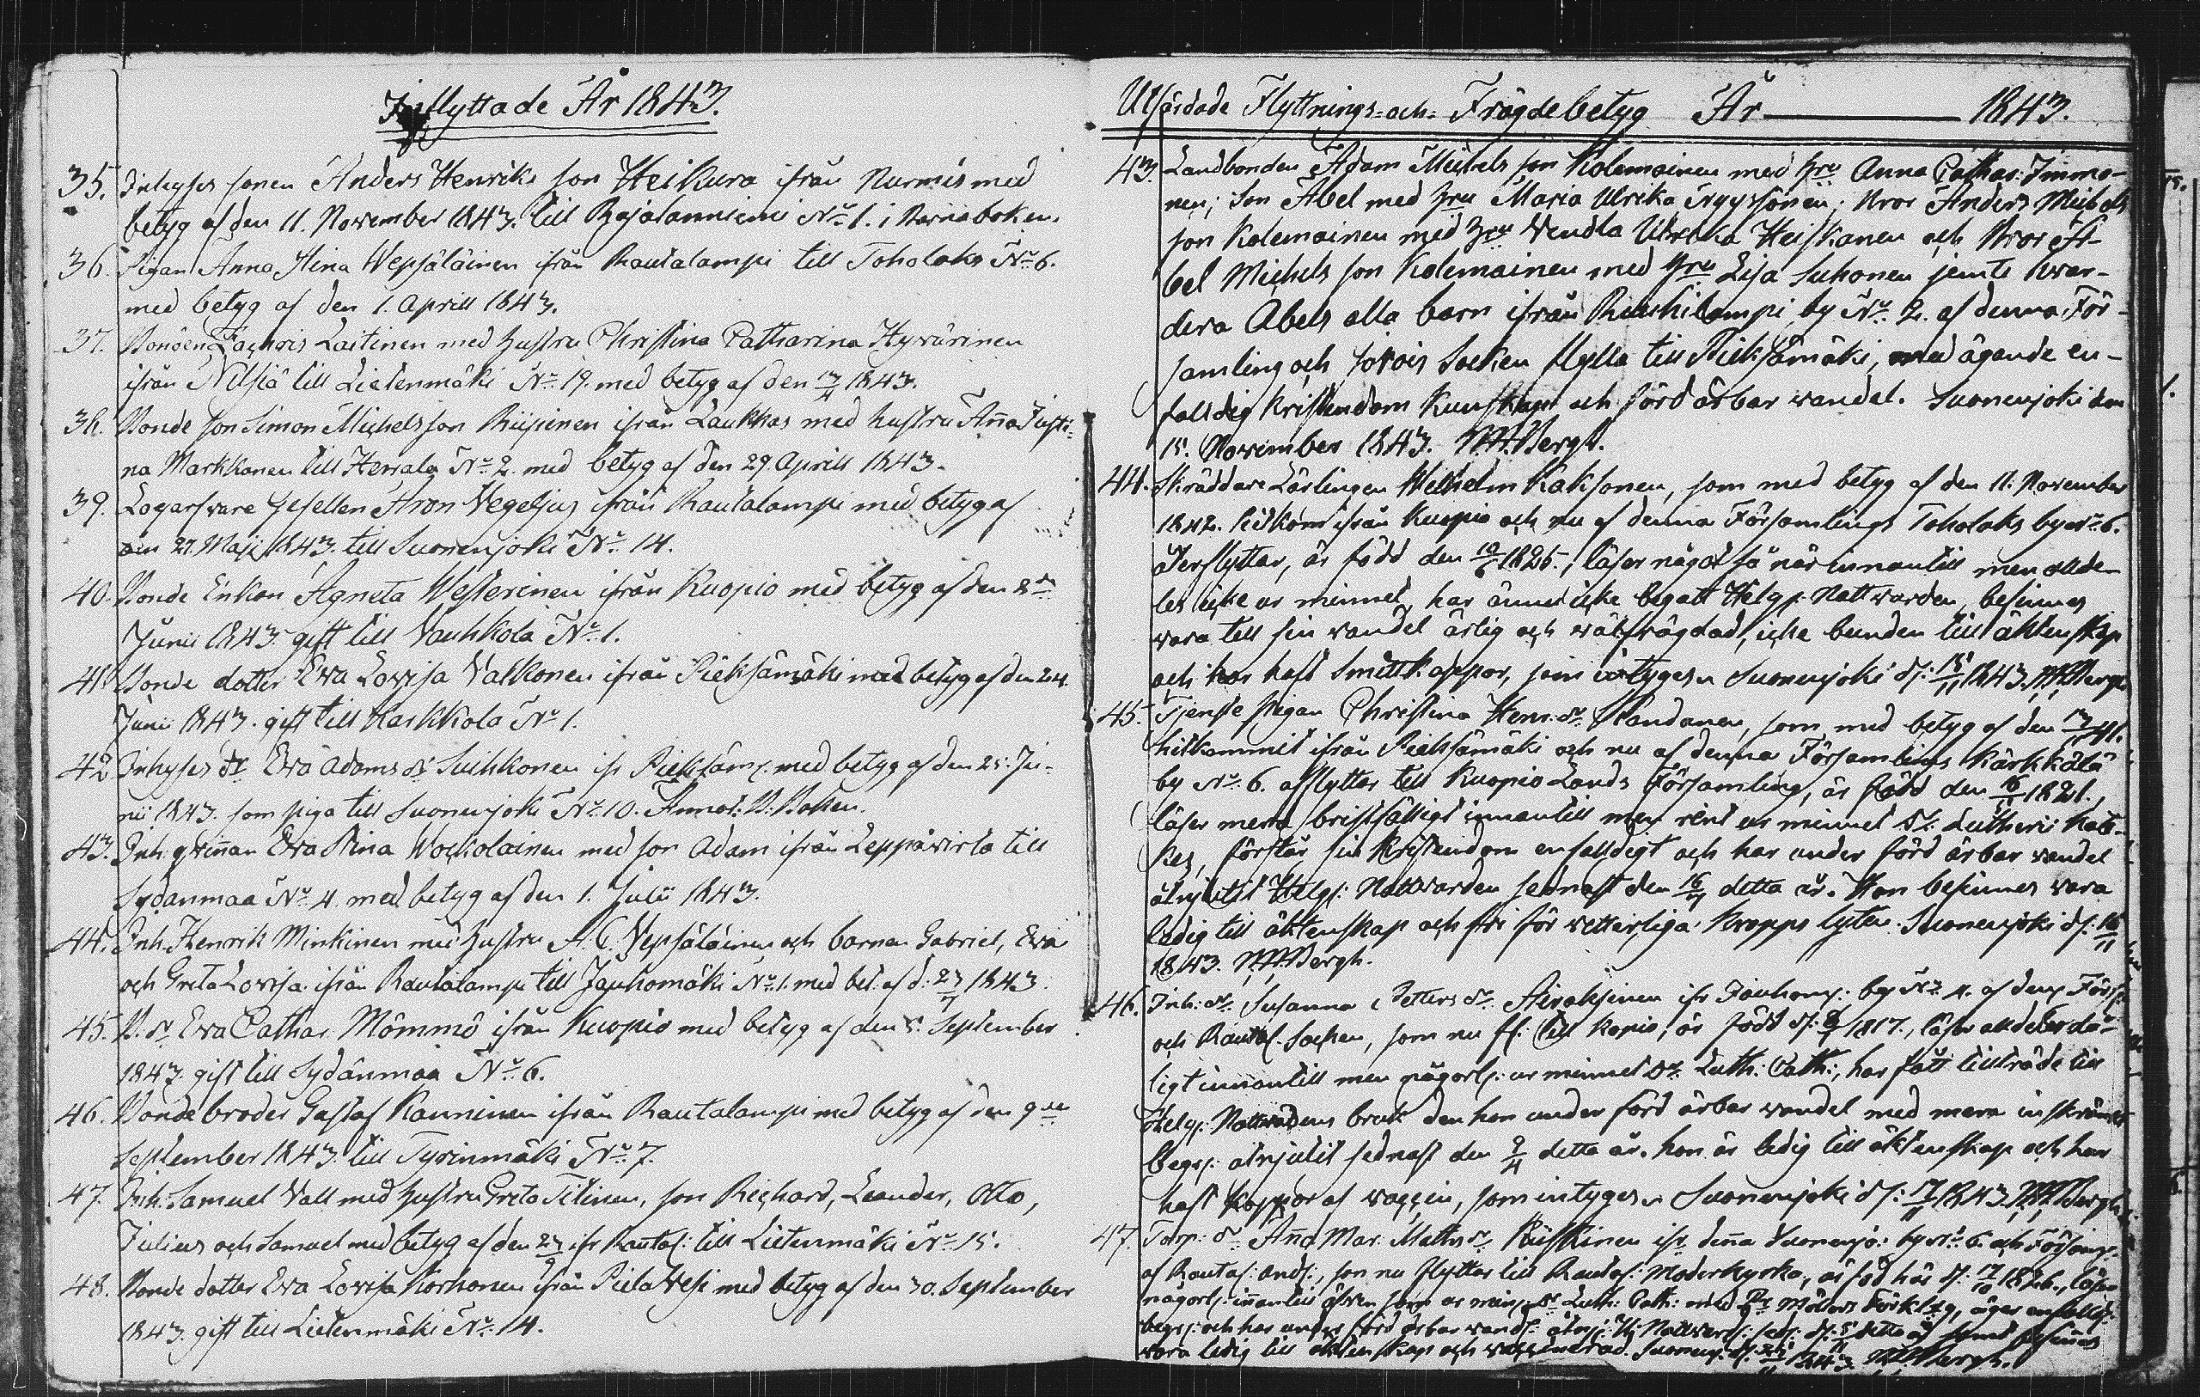 Inflyttade År 1843.
35. Inhyses sonen Anders Henriks son Heikura ifrån Nurmis med
betyg af den 11. November 1843. till Rajalanniemi No 1. i Barnaboken.
36. Pigan Anna Stina Wepsäläinen ifrån Rautalampi till Toholaks No 6.
med betyg af den 1. Aprill 1843.
37. Bonden Zachris Laitinen med hustru Christina Catharina Hyvärinen
ifrån Nilsiä till Lietenmäki No 19. med betyg af den 1843.
38. Bonde son Simon Michelsson Riipinen ifrån Laukkas med hustru Anna Justi-
na Markkanen till Herrala No 2. med betyg af den 29 Aprill 1843.
39. Logarfvare Gesellen Aron Vegelius ifrån Rautalampi med betyg af
den 27. Maji 1843. till Suonenjoki No 14.
40. Bonde Enkan Agneta Westerinen ifrån Kuopio med betyg af den
Junii 1843. gift till Vauhkola No 1.
41. Bonde dotter Eva Lovisa Valkonen ifrån Pieksämäki med betyg af den 24.
Junii 1843. gift till Karkkola No 1.
42. Inhyses dr Eva Adams dr Suihkonen ifr Pieksäm: med betyg af den 25: Ju-
nii 1843. som piga till Suonenjoki No 10. Annot. B. Boken.
43. Inh. qvinnan Eva Stina Wockolainen med son Adam ifrån Leppävirta till
Sydänmaa No 4. med betyg af den 1. Julii 1843.
44. Inh. Henrik Minkinen med hustru A. C. Vepsäläinen och barnen Gabriel, Eva
och Greta Lovisa ifrån Rautalampi till Jauhomäki No 1. med bet. af d: 23/7 1843.
45. B. dr Eva Cathar. Mömmö ifrån Kuopio med betyg af den 5. September
1843. gift till Sydänmaa No 6.
46. Bonde broder Gustaf Kanninen ifrån Rautalampi med betyg af den 9de
September 1843. till Tyrinmäki No 7.
47. Inh. Samuel Vall med hustru Greta Tilinen, son Richard, Leander, Otto,
Julius och Samuel med betyg af den 23/9 ifr Rautal: till Lietenmäki No 15.
48. Bonde dotter Eva Lovisa Korhonen ifrån Pielavesi med betyg af den 30. September
1843. gift till Lietenmäki No 14.
Utfärdade Flyttnings- och Frägdebetyg År 1843.
43. Landbonden Adam Michels son Kolemainen med hru Anna Cathar: Immo-
nen; Son Abel med hru Maria Ulrika Nyyssönen; Bror Anders Michels
son Kolemainen med hru Vendla Ulrika Heiskanen och Bror A-
bel Michels son Kolemainen med hru Lisa Suhonen jemte hvar-
dera Abels alla barn ifrån Rieskilampi by No 2. af denna För-
samling och Jorois Socken flytta till Pieksämäki, med ägande en-
faldig Kristendom Kunskap och förd ärbar wandel. Suonenjoki den
15. November 1843. Bergh.
44. Skräddare Lärlingen Wilhelm Kaksonen, som med betyg af den 11. November
1842. hitkom ifrån Kuopio och nu af denna Församlings Toholaks by No 6.
återflyttar, är född den 10/6 1825., läser något så när innantill men allde-
les icke ur minnet, har ännu icke begått Helg: Nattwarden, befinnes
vara till sin wandel ärlig och wälfrägdad, icke bunden till äktenskap
och har haft Smittkoppor, som intygas. Suonenjoki d: 15/11 1843. Bergh
45. Tjenste pigan Christina Henr: dr Pandanen, som med betyg af den
hitkommit ifrån Pieksämäki och nu af denna Församlings Kärkkälä
by No 6. afflyttar till Kuopio Lands Församling, är född den 1821.,
läser mera bristfälligt innantill men rent ur minnet Dr. Lutheri Kate-
kes, förstår sin Kristendom enfaldigt och har under förd ärbar wandel
åtnjutit Helg: Nattwarden sednast den detta år. Hon befinnes wara
ledig till äktenskap och fri för wetterliga Kropps lyten. Suonenjoki d: 16/11
1843. Bergh.
46. Inh: dr Susanna Petters dr Airaksinen ifr Jauhom: by No 4. af denna Förs:
och Rautal. Socken, som nu fl: till Kopio, är född d: 1817., läser alldeles då-
ligt innantill men någorl: ur minnet Dr. Luth: Cath:, har fått tillträde till
Helg: Nattwardens bruk den hon under förd ärbar wandel med mera inskränkt
begr: åtnjutit sednast den 9/4 detta år. hon är ledig till äktenskap och har
haft Koppor af waccin, som intygas. Suonenjoki d: 17/11 1843. Bergh.
47. Torp: dr Anna Mar: Matts dr Riiskinen ifr denna Suonenjo: by No 6. och Försam:
af Rautal: , som nu flyttar till Rautal: Moderkyrka, är född här d: 1826., läser
någorl: innantill äfven som ur minnet Dr. Luth: Cath: med Möllers Förklrg, äger enfaldig:
begr: och har under förd ärbar wand: åtnj: H: Nattward: sedn: d: detta år samt befinnes
wara ledig till äktenskap och waccinerad. Suonenj: d: 1843. Bergh.